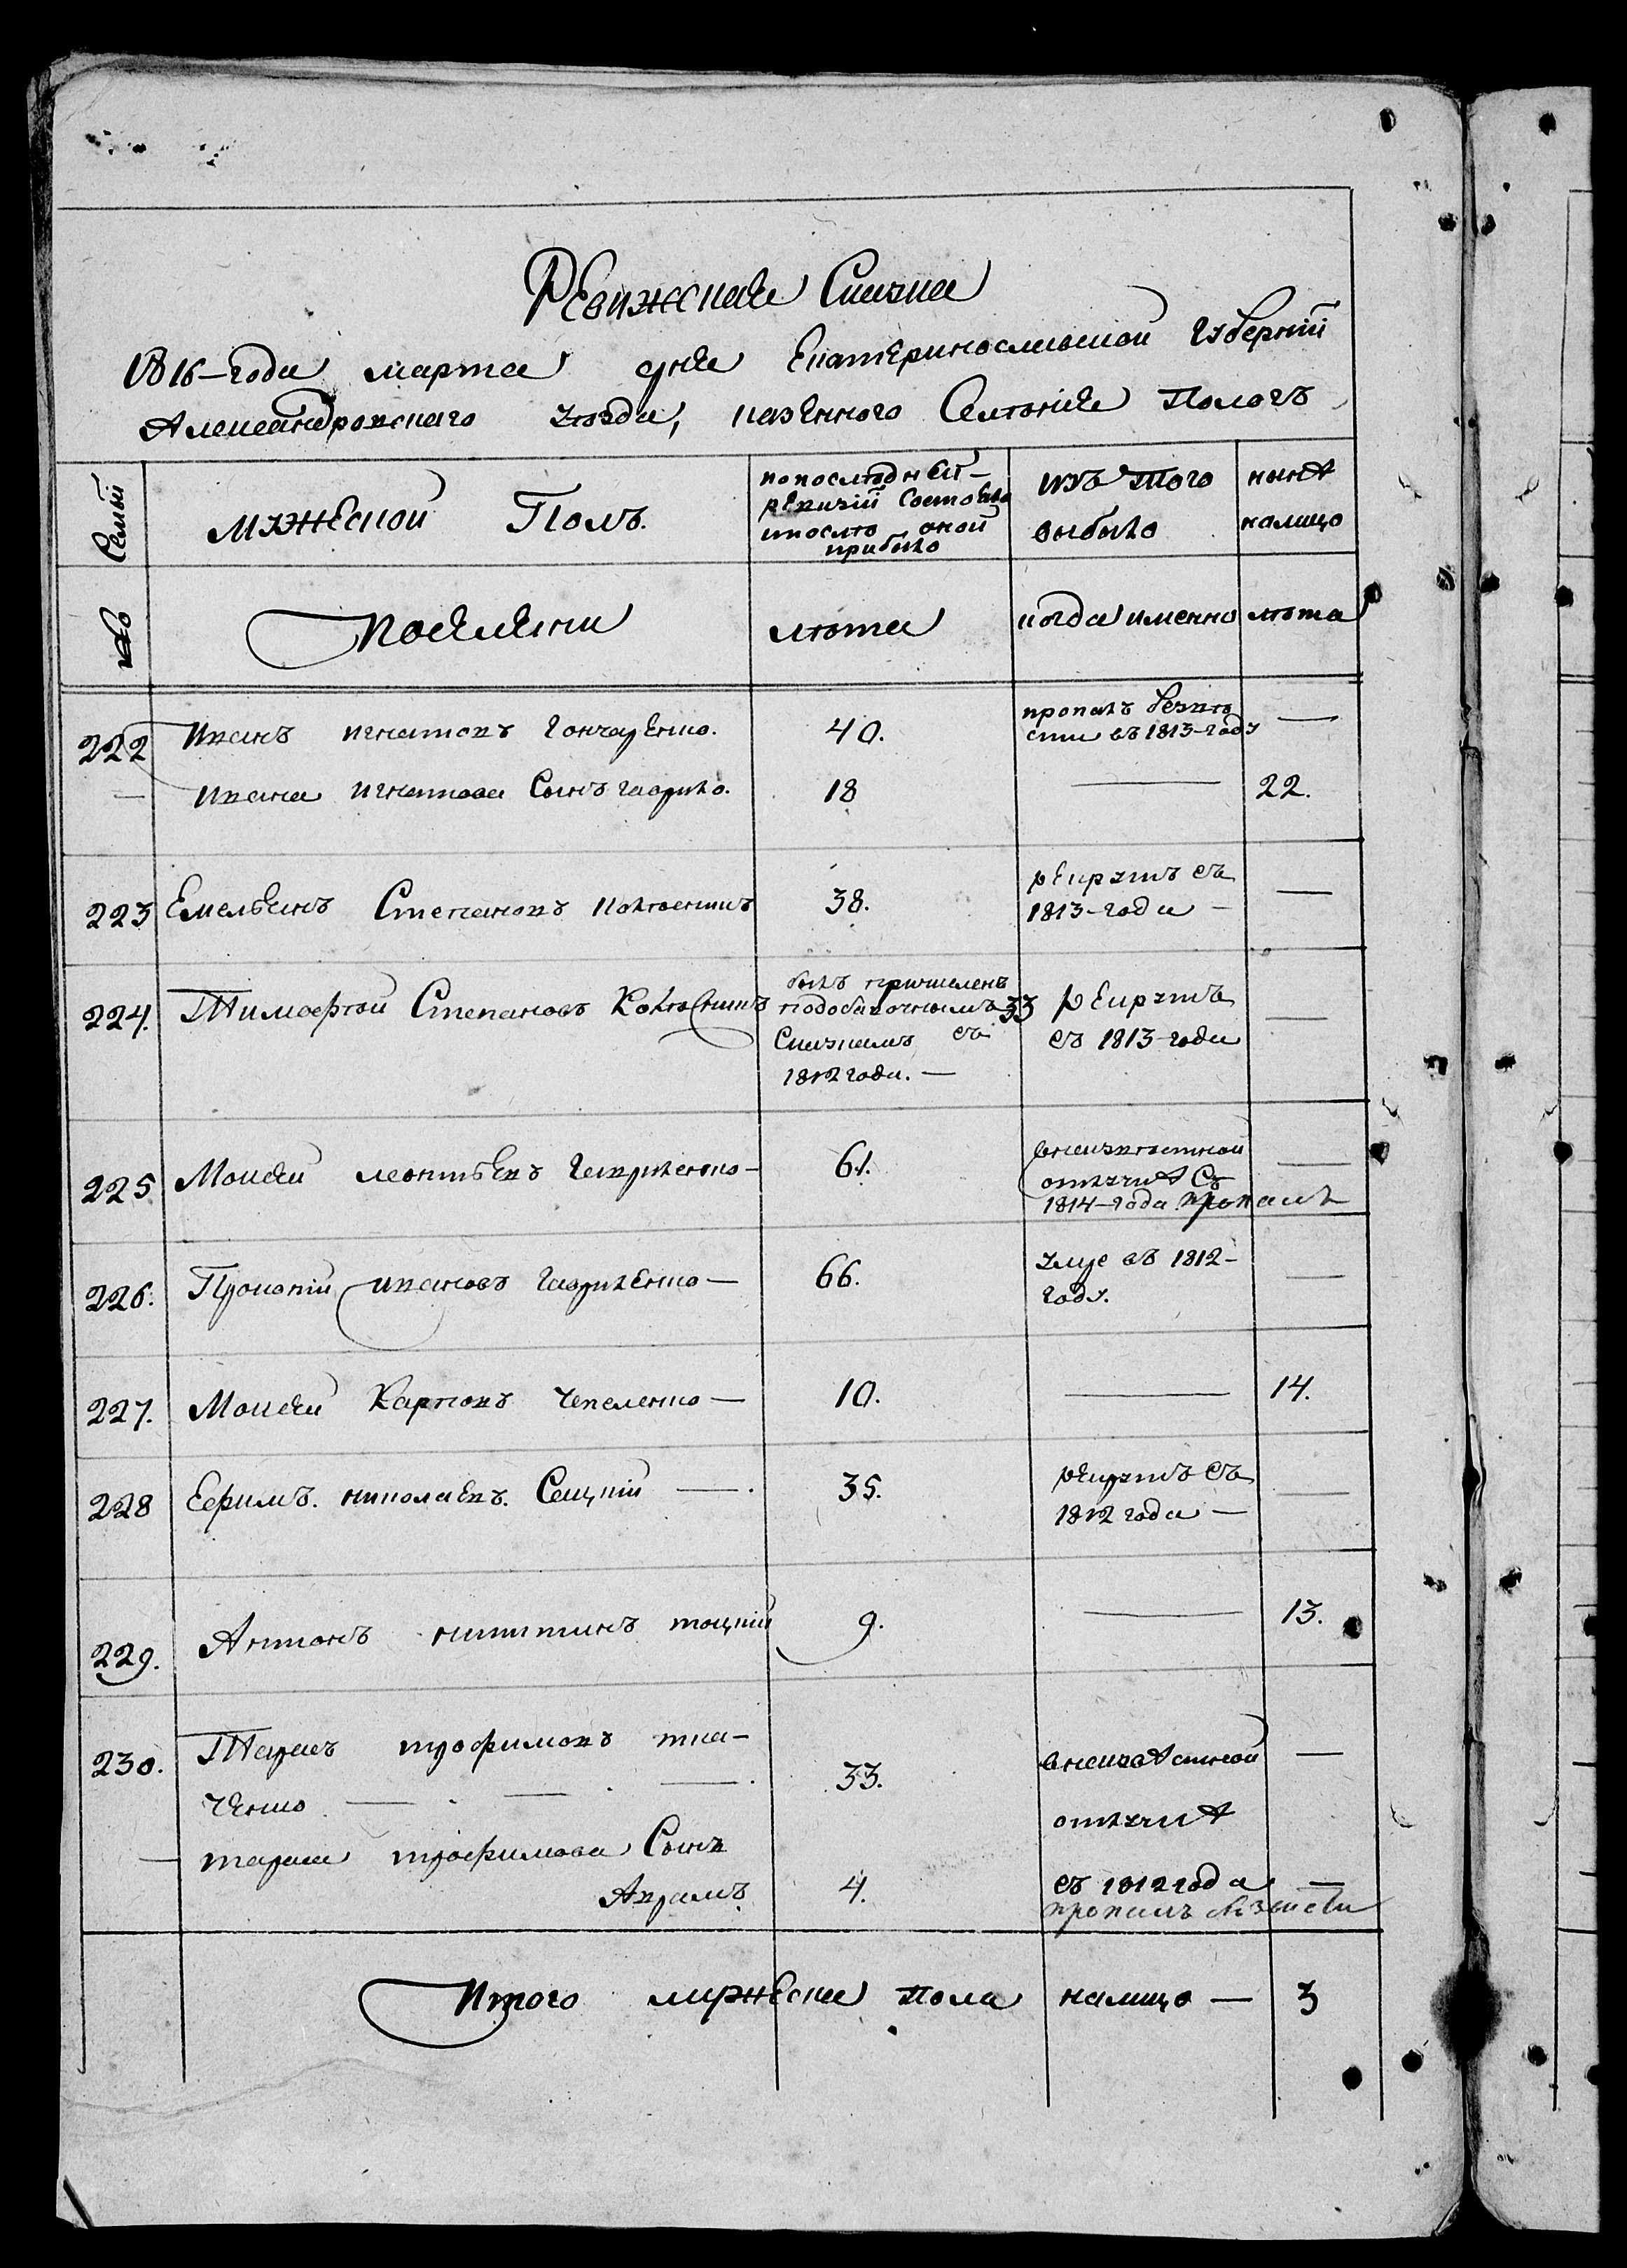 Ревижская Сказка
1816-года марта дня Екатеринославской Губернiи
Александровскаго уѣзда, казенного Селѣнiя Пологъ
Семьи
Мужеской Полъ.
попослѣдней
ревизiи Состояло
ипослѣ оной
прибыло
изъ того
выбыло
нынѣ
налицо
№
Поселяни
лѣта
когда именно
лѣта
222 Иванъ игнатовъ гончаренко. 40. пропалъ безвѣ
сти въ 1813-году —
— ивана игнатова Сынъ гаврило. 18 — 22.
223 Емельянъ Степановъ колѣсникъ 38. рекрутъ съ
1813-года — —
224. Тимофѣй Степановъ Колѣсникъ былъ причисленъ
подобавочнымъ 33
Сказкамъ съ
1812 года. —
рекрутъ
съ 1813-года —
225 Моисей леонтьевъ гавриленко — 61. внеизвѣстной
отлучкѣ Съ
1814-года пропалъ —
226. Прокопiй ивановъ гавриленко — 66. умре въ 1812-
году. —
227. Моисей Карповъ чепеленко — 10. — 14.
228 Ефимъ. николаевъ. Сецкiй — 35. рекрутъ съ
1812 года — —
229. Антонъ никитинъ тоцкiй 9. — 13.
230. Тарасъ трофимовъ тка-
ченко — — — 33. внеизвѣстной —
отлучкѣ
— тараса трофимова Сынъ
Аврамъ. 4. съ 1812 года —
пропалъ безвести
Итого мужеска пола налицо — 3